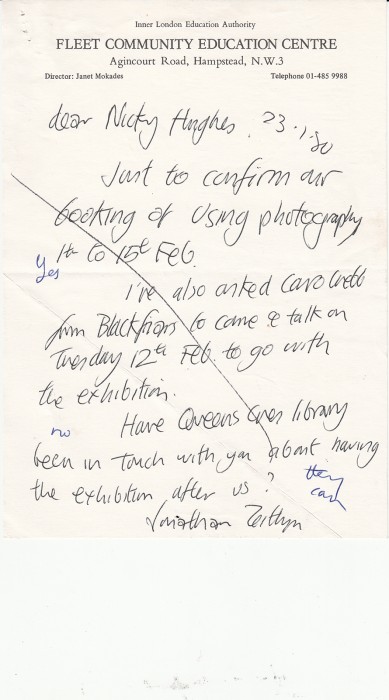 Inner London Education Authority
FLEET COMMUNITY EDUCATION CENTRE
Agincourt Road, Hampstead, N.W.3
Director: Janet Mokades Telephone 01-485 9988
dear Nicky Hughes, 23.1.80
Just to confirm our
booking of Using photography
1st to 15th Feb.
Yes
I've also asked Carol
from Blackfriars to come & talk on
Tuesday 12th Feb. to go with
the exhibition.
Have Queens Cres library
no
been in touch with you about having
the exhibition after us?
they
can
Jonathan Zeitlyn